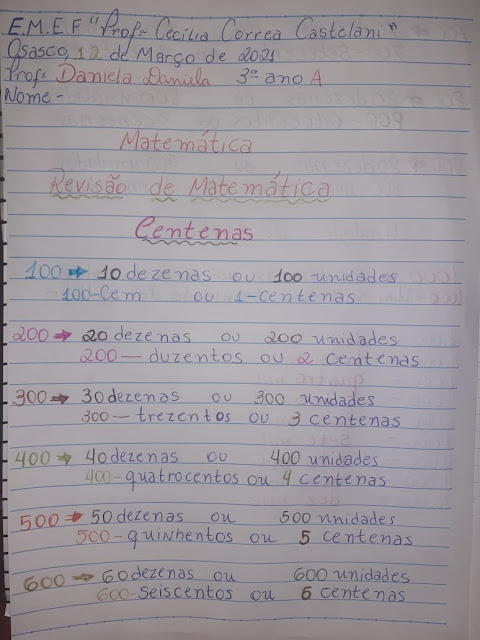 E.M.E.F "Profª Cecília Correa Castelani"
Osasco, 12 de Março de 2021
Profª Daniela Daniela 3º ano A
Nome-
Matemática
Revisão de Matemática
Centenas
100 → 10 dezenas ou 100 unidades
100-Cem ou 1-centenas
200 → 20 dezenas ou 200 unidades
200 — duzentos ou 2 centenas
300 → 30 dezenas ou 300 unidades
300 — trezentos ou 3 centenas
400 → 40 dezenas ou 400 unidades
400-quatrocentos ou 4 centenas
500 → 50 dezenas ou 500 unidades
500-quinhentos ou 5 centenas
600 → 60 dezenas ou 600 unidades
600-seiscentos ou 6 centenas